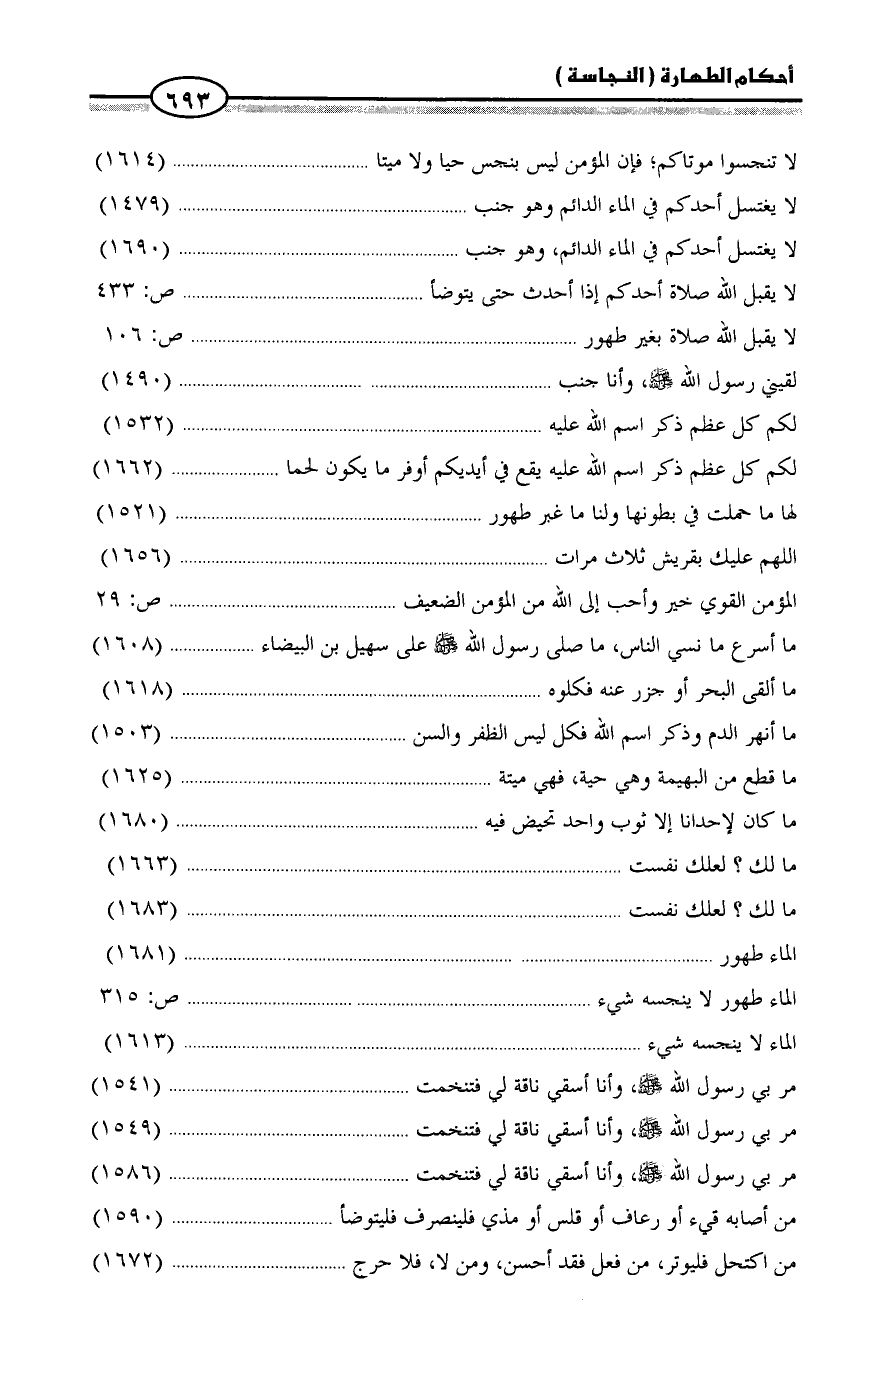 أحكام الطهارة (النجاسة)
٦٩٣
لا تنجسوا موتاكم؛ فإن المؤمن ليس بنجس حيا ولا ميتا ........ (١٦١٤)
لا يغتسل أحدكم في الماء الدائم وهو جنب ........ (١٤٧٩)
لا يغتسل أحدكم في الماء الدائم، وهو جنب ........ (١٦٩٠)
لا يقبل الله صلاة أحدكم إذا أحدث حتى يتوضأ ........ ص: ٤٣٣
لا يقبل الله صلاة بغير طهور ........ ص: ١٠٦
لقيني رسول الله ﷺ، وأنا جنب ........ (١٤٩٠)
لكم كل عظم ذكر اسم الله عليه ........ (١٥٣٢)
لكم كل عظم ذكر اسم الله عليه يقع في أيديكم أوفر ما يكون لحما ........ (١٦٦٢)
لها ما حملت في بطونها ولنا ما غبر طهور ........ (١٥٢١)
اللهم عليك بقريش ثلاث مرات ........ (١٦٥٦)
المؤمن القوي خير وأحب إلى الله من المؤمن الضعيف ........ ص: ٢٩
ما أسرع ما نسي الناس، ما صلى رسول الله ﷺ على سهيل بن البيضاء ........ (١٦٠٨)
ما ألقى البحر أو جزر عنه فكلوه ........ (١٦١٨)
ما أنهر الدم وذكر اسم الله فكل ليس الظفر والسن ........ (١٥٠٣)
ما قطع من البهيمة وهي حية، فهي ميتة ........ (١٦٢٥)
ما كان لإحدانا إلا ثوب واحد تحيض فيه ........ (١٦٨٠)
ما لك ؟ لعلك نفست ........ (١٦٦٣)
ما لك ؟ لعلك نفست ........ (١٦٨٣)
الماء طهور ........ (١٦٨١)
الماء طهور لا ينجسه شيء ........ ص: ٣١٥
الماء لا ينجسه شيء ........ (١٦١٣)
مر بي رسول الله ﷺ، وأنا أسقي ناقة لي فتنخمت ........ (١٥٤١)
مر بي رسول الله ﷺ، وأنا أسقي ناقة لي فتنخمت ........ (١٥٤٩)
مر بي رسول الله ﷺ، وأنا أسقي ناقة لي فتنخمت ........ (١٥٨٦)
من أصابه قيء أو رعاف أو قلس أو مذي فلينصرف فليتوضأ ........ (١٥٩٠)
من اكتحل فليوتر، من فعل فقد أحسن، ومن لا، فلا حرج ........ (١٦٧٢)